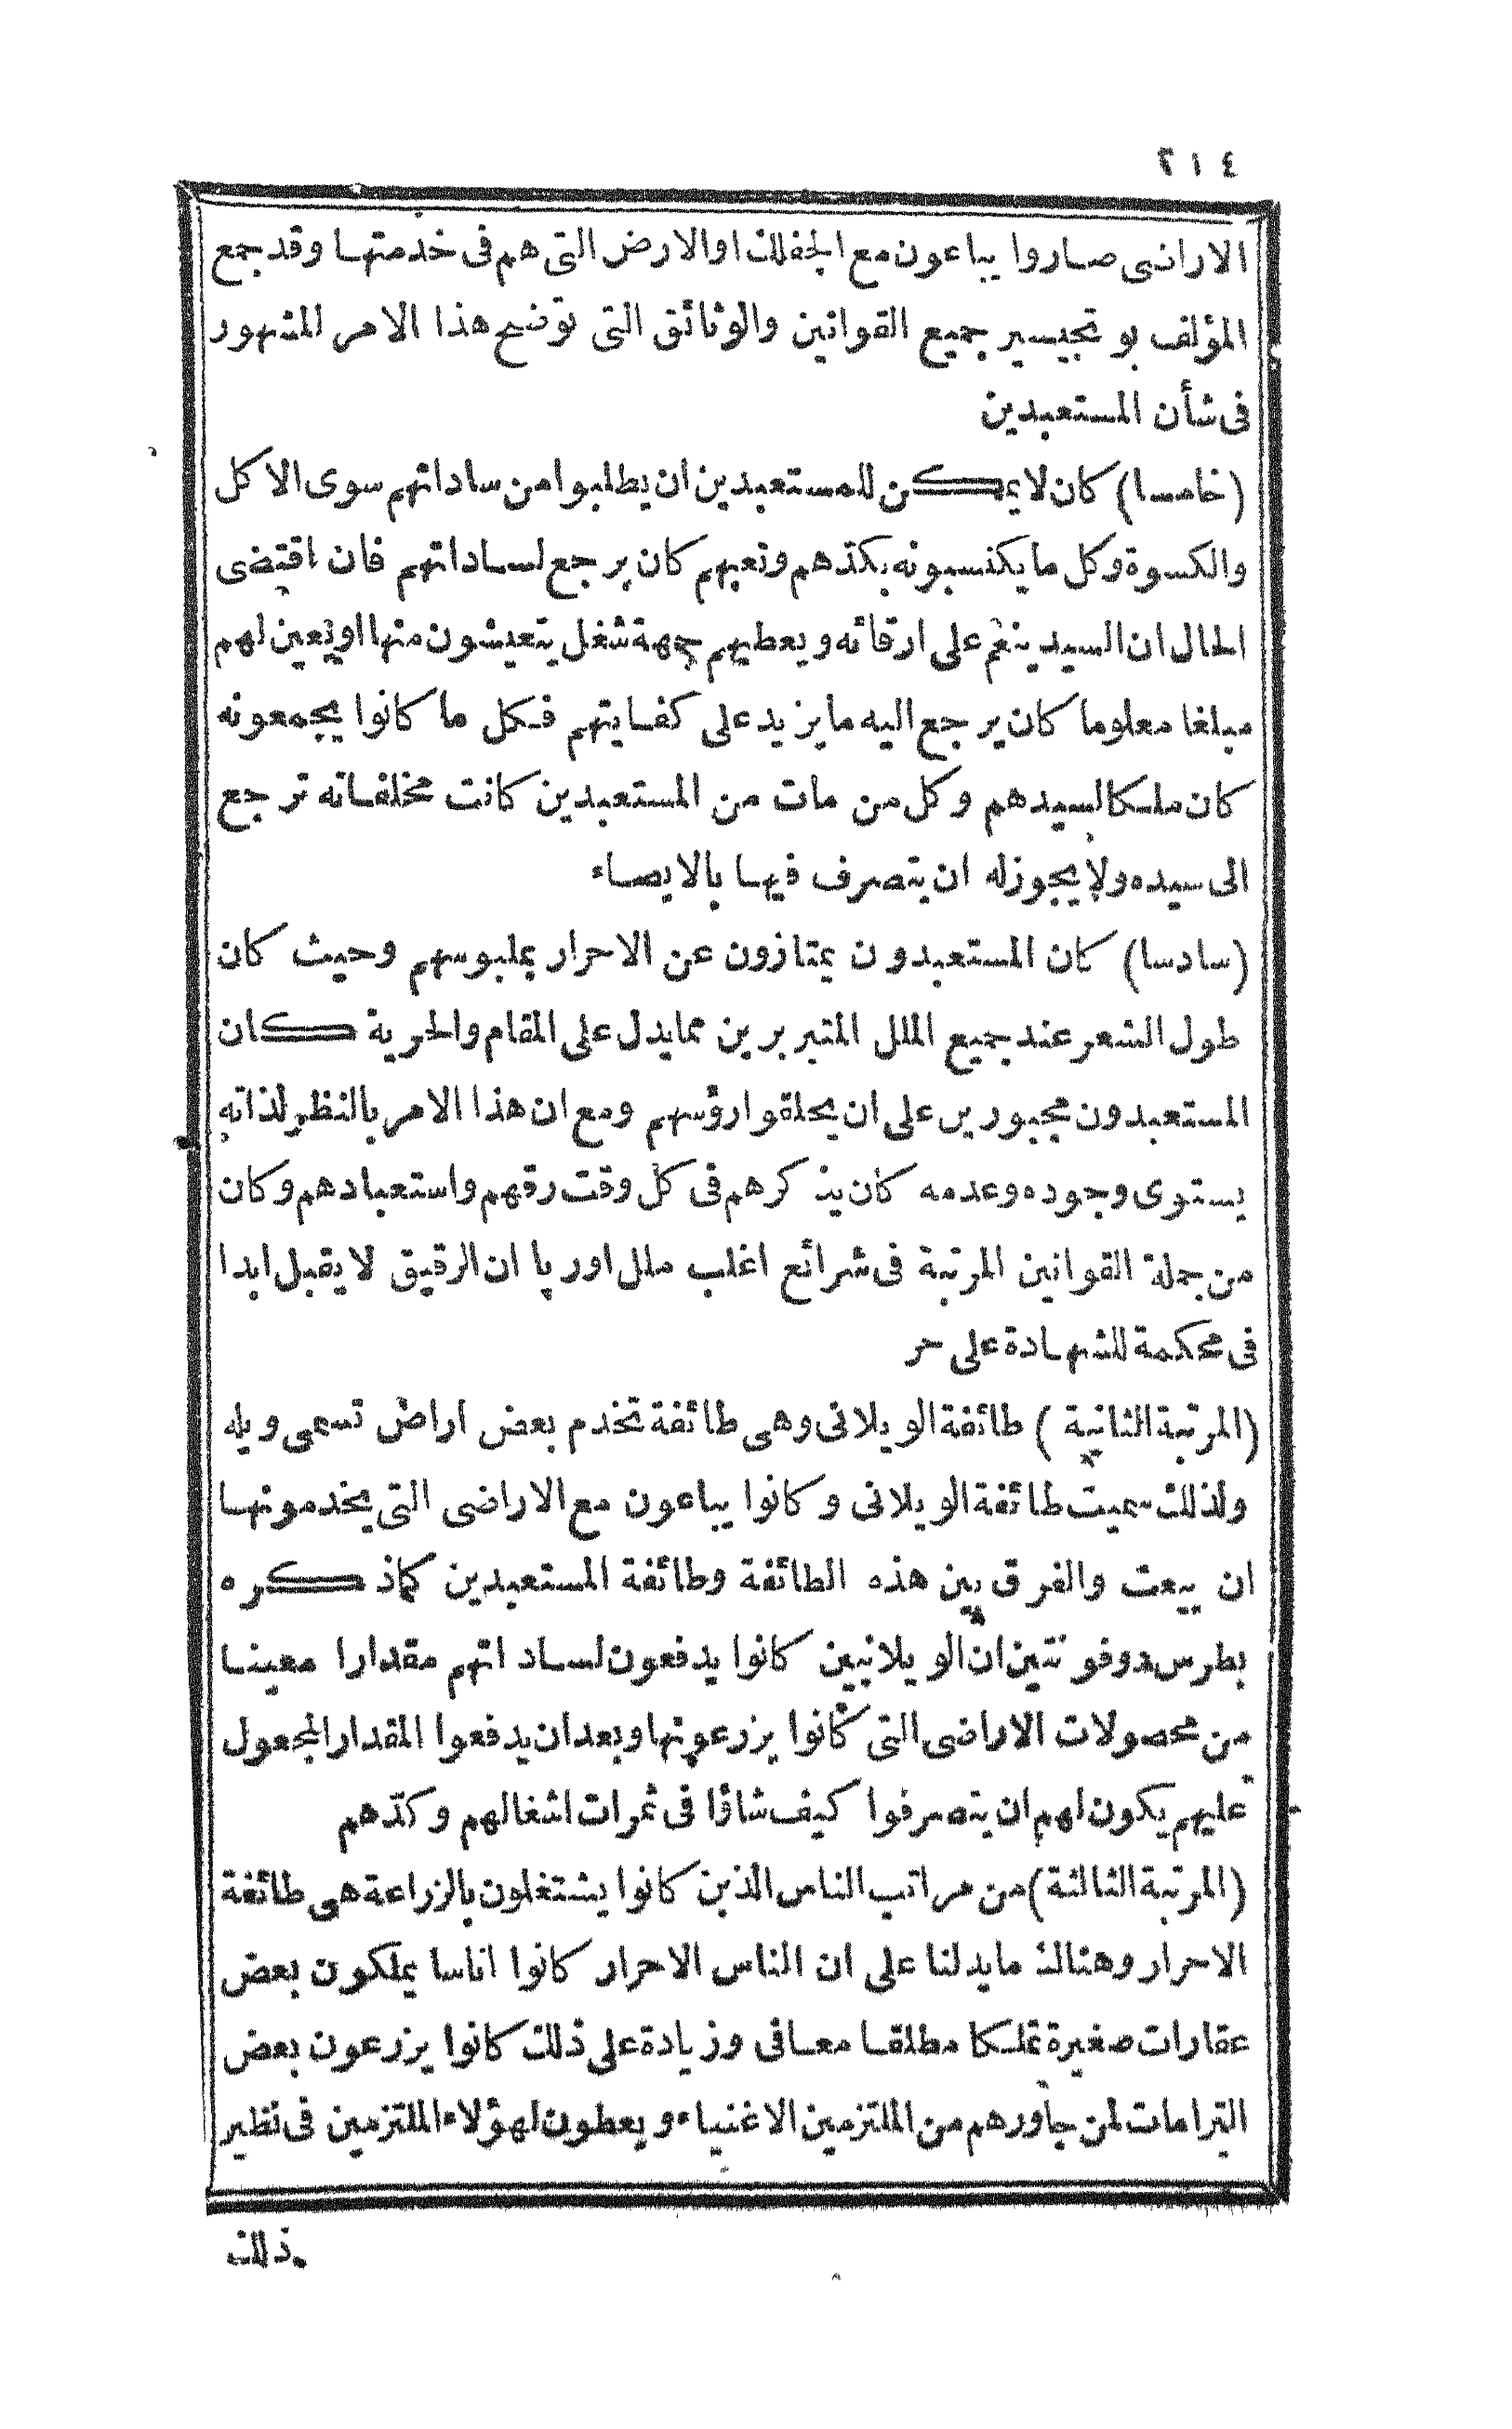 ٢١٤
الاراضى صاروا يباعون مع الجفلك او الارض التى هم فى خدمتها وقد جمع
المؤلف بو تجيسير جميع القوانين والوثائق التى توضح هذا الامر المشهور
فى شأن المستعبدين
(خامسا) كان لا يمكن للمستعبدين ان يطلبوا من ساداتهم سوى الاكل
والكسوة وكل ما يكتسبونه بكدّهم وتعبهم كان يرجع لساداتهم فان اقتضى
الحال ان السيد ينعم على ارقائه ويعطيهم جهة شغل يتعيشون منها او يعين لهم
مبلغا معلوما كان يرجع اليه ما يزيد على كفايتهم فكل ما كانوا يجمعونه
كان ملكا لسيدهم وكل من مات من المستعبدين كانت مخلفاته ترجع
الى سيده ولا يجوز له ان يتصرف فيها بالايصاء
(سادسا) كان المستعبدون يمتازون عن الاحرار بملبوسهم وحيث كان
طول الشعر عند جميع الملل المتبربرين مما يدل على المقام والحرية كان
المستعبدون مجبورين على ان يحلقوا رؤسهم ومع ان هذا الامر بالنظر لذاته
يستوى وجوده وعدمه كان يذكرهم فى كل وقت رقهم واستعبادهم وكان
من جملة القوانين المرتبة فى شرائع اغلب ملل اوربا ان الرقيق لا يقبل ابدا
فى محكمة للشهادة على حر
(المرتبة الثانية) طائفة الويلانى وهى طائفة تخدم بعض اراض تسمى ويله
ولذلك سميت طائفة الويلانى وكانوا يباعون مع الاراضى التى يخدمونها
ان بيعت والفرق بين هذه الطائفة وطائفة المستعبدين كما ذكره
بطرس دوفونتين ان الويلانيين كانوا يدفعون لساداتهم مقدارا معينا
من محصولات الاراضى التى كانوا يزرعونها وبعد ان يدفعوا المقدار المجعول
عليهم يكون لهم ان يتصرفوا كيف شاؤا فى ثمرات اشغالهم وكدّهم
(المرتبة الثالثة) من مراتب الناس الذين كانوا يشتغلون بالزراعة هى طائفة
الاحرار وهناك ما يدلنا على ان الناس الاحرار كانوا اناسا يملكون بعض
عقارات صغيرة تملكا مطلقا معافى وزيادة على ذلك كانوا يزرعون بعض
التزامات لمن جاورهم من الملتزمين الاغنياء ويعطون لهؤلاء الملتزمين فى نظير
ذلك